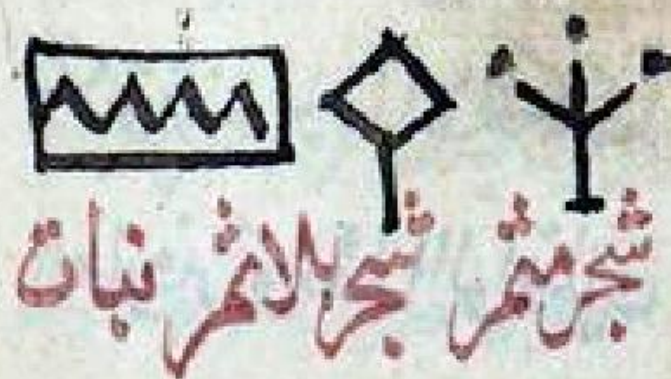 شجر مثمر شجر بلا ثمر نبات